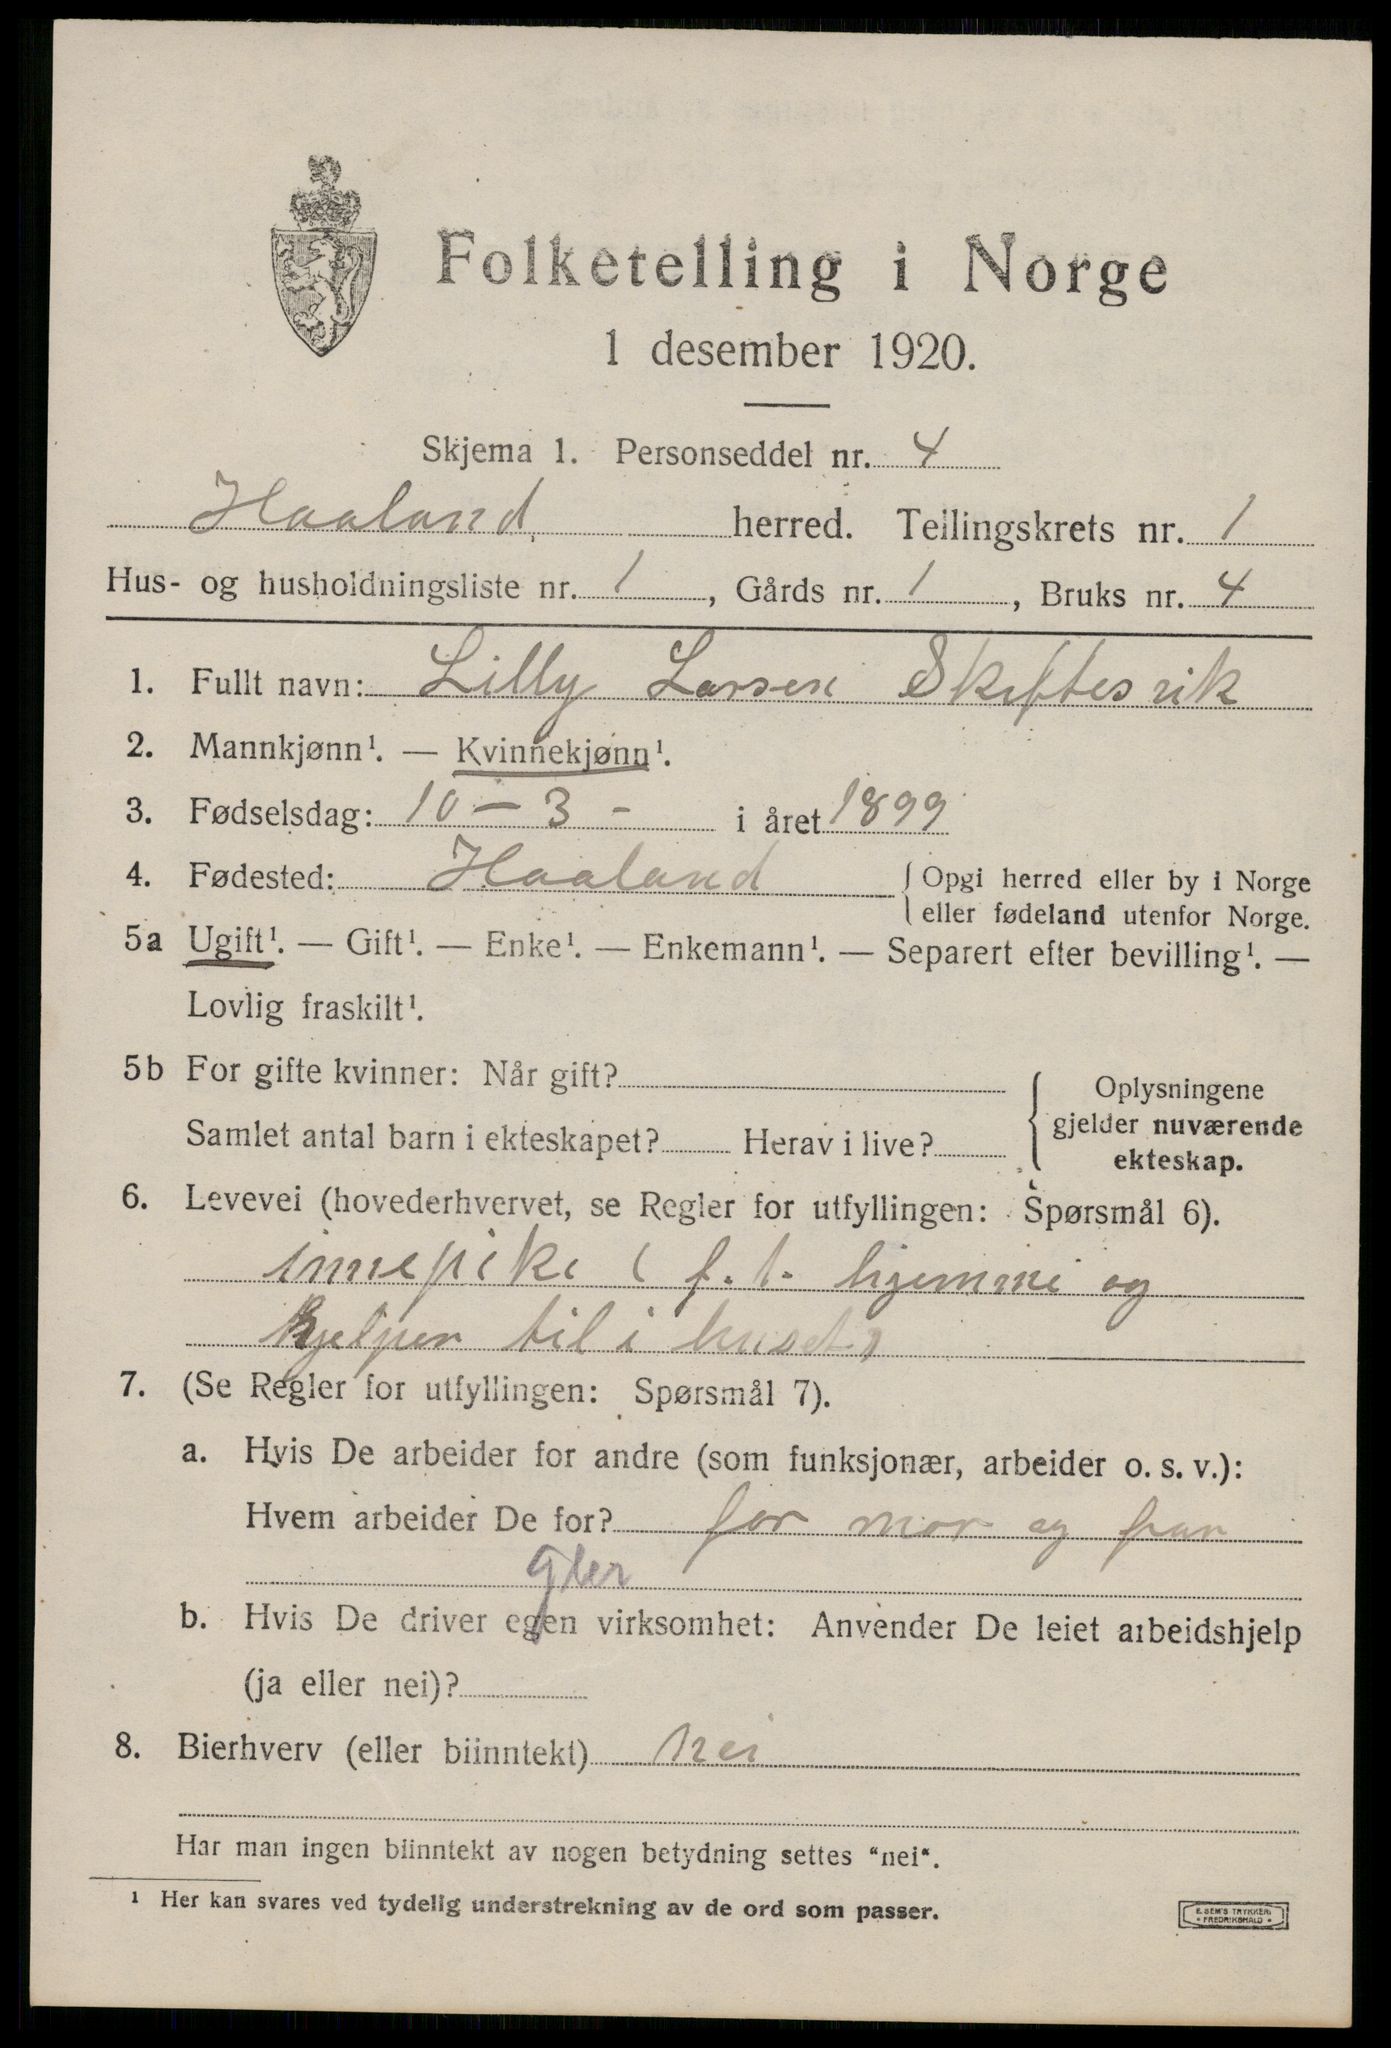 Folketelling i Norge
1 desember 1920.
Skjema 1. Personseddel nr. 4
Haaland herred. Tellingskrets nr. 1
Hus- og husholdningsliste nr. 1, Gårds nr. 1, Bruks nr. 4
1. Fullt navn: Lilly Larsen Skiftesvik
2. Mannkjønn¹. — Kvinnekjønn¹.
3. Fødselsdag: 10 – 3 – i året 1899
4. Fødested: Haaland { Opgi herred eller by i Norge
eller fødeland utenfor Norge.
5a Ugift¹. — Gift¹. — Enke¹. — Enkemann¹. — Separert efter bevilling¹. —
Lovlig fraskilt¹.
5b For gifte kvinner: Når gift?
Samlet antal barn i ekteskapet? Herav i live?
Oplysningene
gjelder nuværende
ekteskap.
6. Levevei (hovederhvervet, se Regler for utfyllingen: Spørsmål 6).
innepike ( f. t. hjemme og
hjelper til i huset)
7. (Se Regler for utfyllingen: Spørsmål 7).
a. Hvis De arbeider for andre (som funksjonær, arbeider o. s. v.):
Hvem arbeider De for? for mor og far
b. Hvis De driver egen virksomhet: Anvender De leiet arbeidshjelp
(ja eller nei)?
8. Bierhverv (eller biinntekt) nei
Har man ingen biinntekt av nogen betydning settes "nei".
1 Her kan svares ved tydelig understrekning av de ord som passer.
E. SEM'S TRYKKERI
• FREDRIKSHALD •